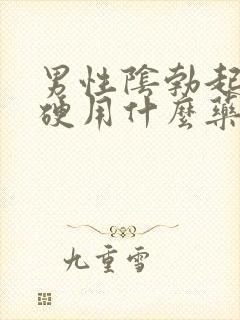 男性陰勃起
硬用什麼藥
九重雪